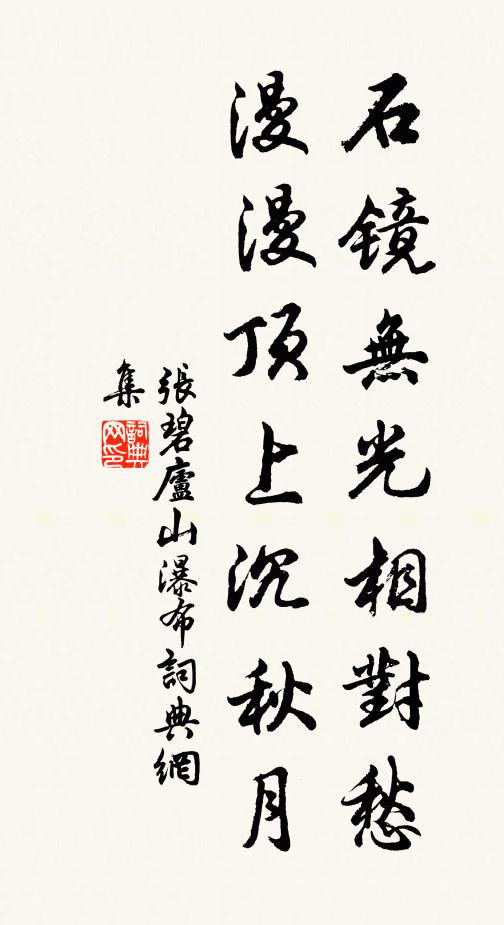 石鏡無光相對愁
漫漫頂上沉秋月
張碧廬山瀑布詞典網
集
詞典網印